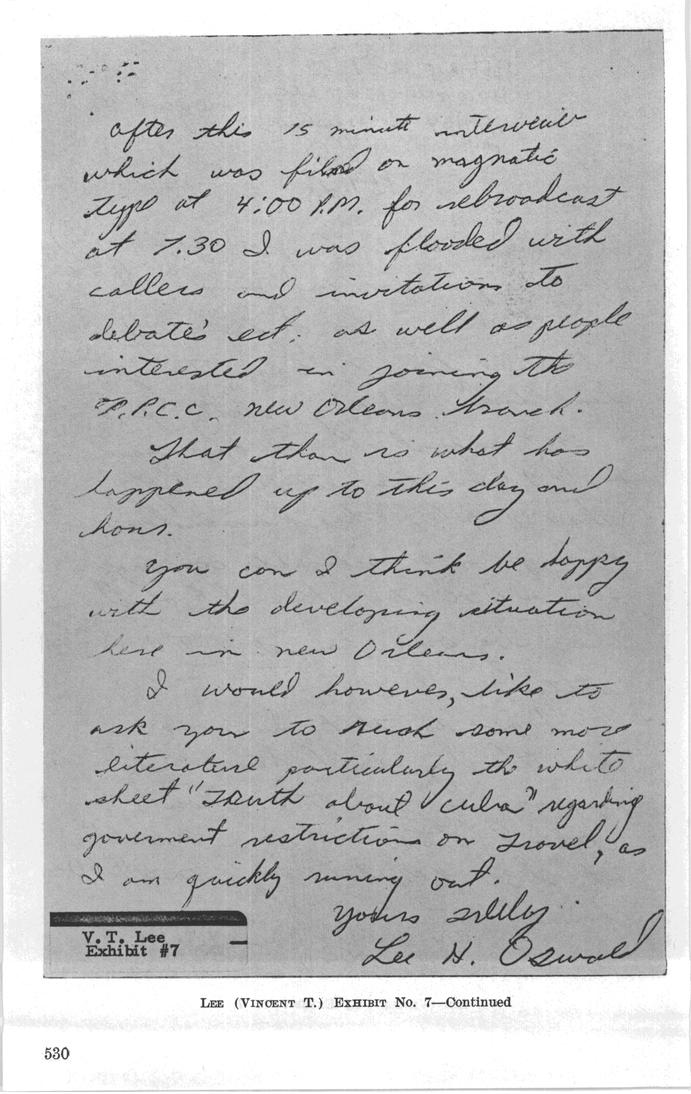 after this 15 minute interveiw
which was filmed on magnatic
type at 4:00 P.M. for rebroadcast
at 7.30 I was flooded with
callers and invitations to
debate's ect. as well as people
interested in joining the
F.P.C.C. new Orleans branch.
That than is what has
happened up to this day and
hour.
You can I think be happy
with the developing situation
here in new Orleans.
I would however, like to
ask you to rush some more
literature particularly the white
sheet "Truth about Cuba" regarding
goverment restrictions on travel, as
I am quickly runing out.
Yours
Lee H. Oswald
V. T. Lee
Exhibit #7
LEE (VINCENT T.) EXHIBIT No. 7—Continued
530